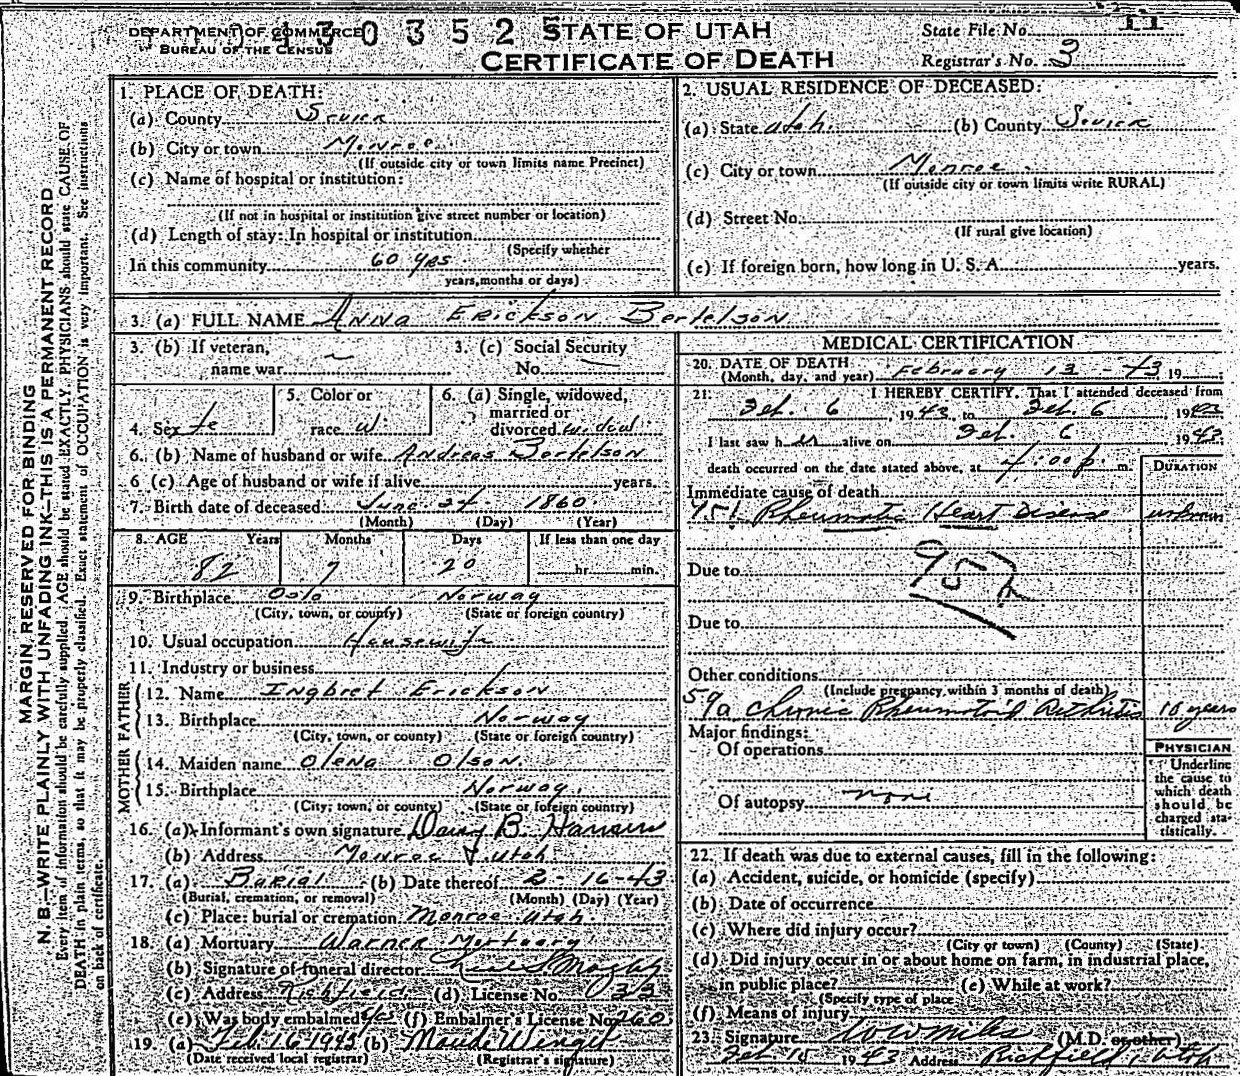 DEPARTMENT OF COMMERCE
BUREAU OF THE CENSUS
130352
STATE OF UTAH
CERTIFICATE OF DEATH
State File No. 11
Registrar's No. 3
MARGIN RESERVED FOR BINDING
N. B.—WRITE PLAINLY WITH UNFADING INK—THIS IS A PERMANENT RECORD
Every item of information should be carefully supplied. AGE should be stated EXACTLY. PHYSICIANS should state CAUSE OF
DEATH in plain terms, so that it may be properly classified. Exact statement of OCCUPATION is very important. See instructions
on back of certificate.
1. PLACE OF DEATH:
(a) County Sevier
(b) City or town Monroe
(If outside city or town limits name Precinct)
(c) Name of hospital or institution:
(If not in hospital or institution give street number or location)
(d) Length of stay: In hospital or institution
(Specify whether
In this community 60 yrs
years, months or days)
2. USUAL RESIDENCE OF DECEASED:
(a) State Utah (b) County Sevier
(c) City or town Monroe
(If outside city or town limits write RURAL)
(d) Street No.
(If rural give location)
(e) If foreign born, how long in U. S. A. years.
3. (a) FULL NAME Anna Erickson Bertelson
3. (b) If veteran,
name war
3. (c) Social Security
No.
4. Sex fe
5. Color or
race W.
6. (a) Single, widowed,
married or
divorced widow
6. (b) Name of husband or wife Andreas Bertelson
6 (c) Age of husband or wife if alive years.
7. Birth date of deceased June 24 1860
(Month) (Day) (Year)
8. AGE Years Months Days If less than one day
82 7 20 hr. min.
9. Birthplace Oslo Norway
(City, town, or county) (State or foreign country)
10. Usual occupation Housewife
11. Industry or business
FATHER
12. Name Ingbret Erickson
13. Birthplace Norway
(City, town, or county) (State or foreign country)
MOTHER
14. Maiden name Olena Olson
15. Birthplace Norway
(City, town, or county) (State or foreign country)
16. (a) Informant's own signature B. Hansen
(b) Address Monroe Utah
17. (a) Burial (b) Date thereof 2-16-43
(Burial, cremation, or removal) (Month) (Day) (Year)
(c) Place: burial or cremation Monroe Utah
18. (a) Mortuary Warner Mortuary
(b) Signature of funeral director
(c) Address Richfield (d) License No. 33
(e) Was body embalmed yes (f) Embalmer's License No. 260
19. (a) Feb. 16 1943 (b) Maude Winget
(Date received local registrar) (Registrar's signature)
MEDICAL CERTIFICATION
20. DATE OF DEATH
(Month, day, and year) February 13 - 43 19
21. I HEREBY CERTIFY, That I attended deceased from
Feb. 6, 1943 to Feb. 6, 1943
I last saw her alive on Feb. 6 1943
death occurred on the date stated above, at 4:00 p m.
DURATION
Immediate cause of death
Rheumatic Heart Disease unknown
Due to
Due to
Other conditions
(Include pregnancy within 3 months of death)
59a Chronic Rheumatoid Arthritis 10 years
Major findings:
Of operations
Of autopsy none
PHYSICIAN
Underline
the cause to
which death
should be
charged sta-
tistically.
22. If death was due to external causes, fill in the following:
(a) Accident, suicide, or homicide (specify)
(b) Date of occurrence
(c) Where did injury occur?
(City or town) (County) (State)
(d) Did injury occur in or about home on farm, in industrial place,
in public place? (e) While at work?
(Specify type of place
(f) Means of injury
23. Signature (M.D. or other)
Feb 15 1943 Address Richfield, Utah